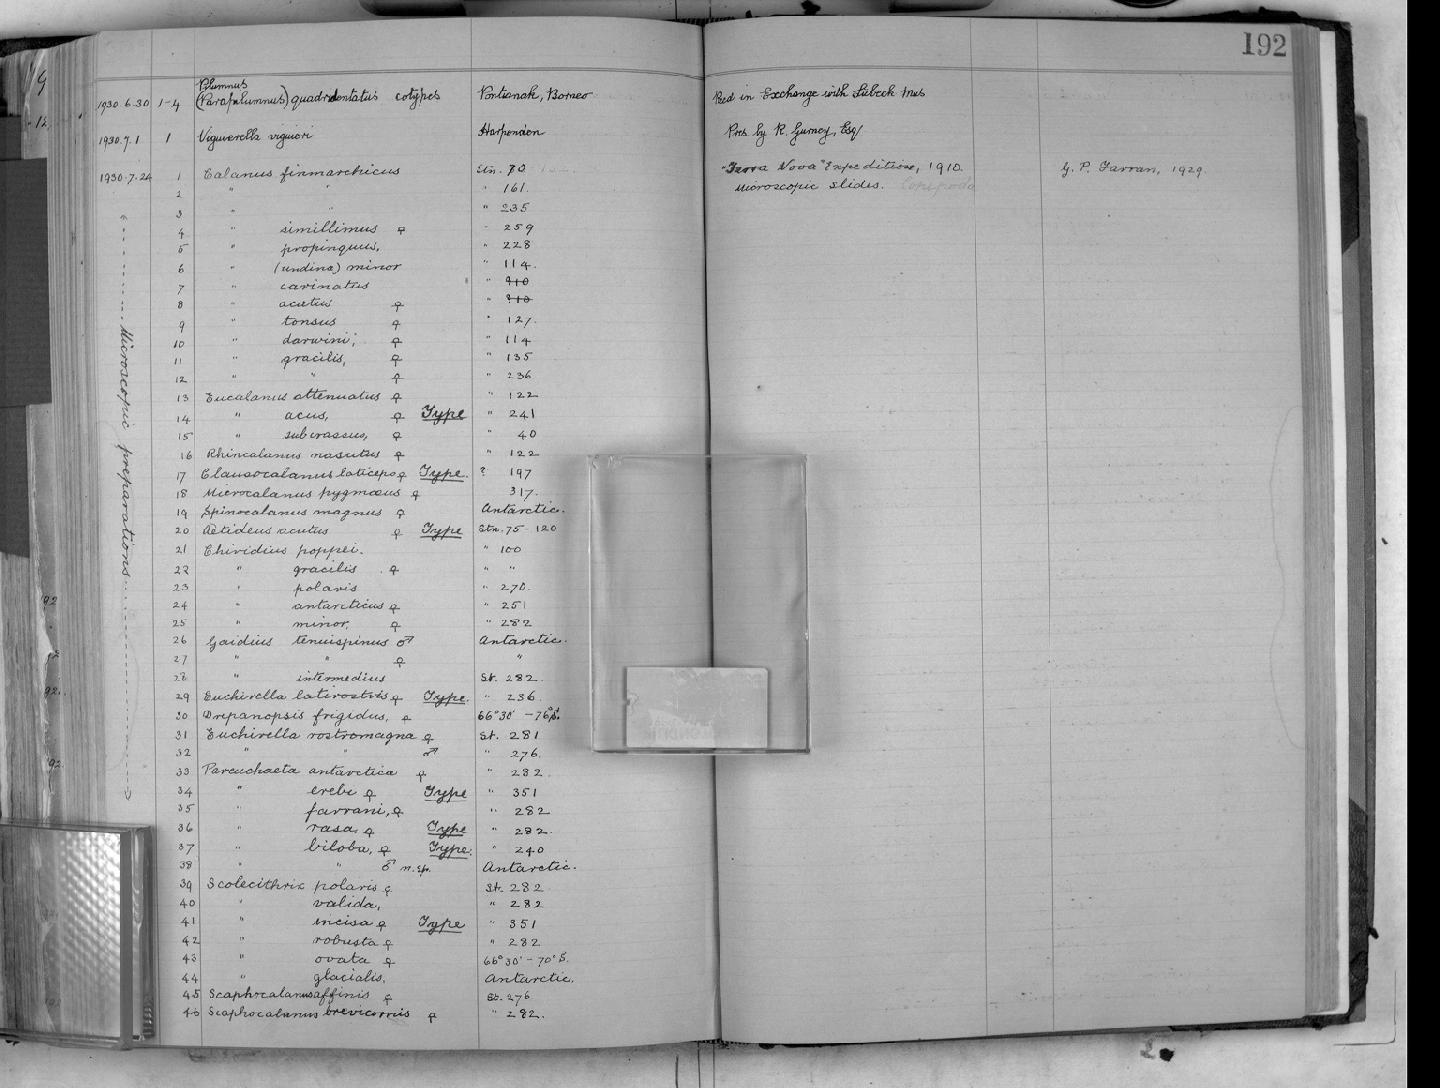 192
Pilumnus
1930.6.30 1-4 (Parapilumnus) quadridentatus cotypes Pontianak, Borneo Recd in Exchange with Lübeck Mus
1930.7.1 1 Viguierella viguieri Harpenden Pres. by R. Gurney, Esq
1930.7.24 1 Calanus finmarchicus Stn. 70 "Terra Nova" Expedition, 1910. G. P. Farran, 1929.
2 " " " 161. Microscopic slides. Copepoda
3 " " " 235
4 " simillimus ♀ " 259
5 " propinquus, " 228
6 " (undina) minor " 114.
7 " carinatus " 910
8 " acutus ♀ " 910
9 " tonsus ♀ " 127.
10 " darwini, ♀ " 114
11 " gracilis, ♀ " 135
12 " " ♀ " 236
13 Eucalanus attenuatus ♀ " 122
14 " acus, ♀ Type " 241
15 " subcrassus, ♀ " 40
16 Rhincalanus nasutus ♀ " 122
17 Clausocalanus laticeps ♀ Type. ? 197
18 Microcalanus pygmæus ♀ 317.
19 Spinocalanus magnus ♀ Antarctic.
20 Aetideus acutus ♀ Type Stn. 75 - 120
21 Chiridius poppei. " 100
22 " gracilis ♀ " "
23 " polaris " 270.
24 " antarcticus ♀ " 251
25 " minor, ♀ " 282
26 Gaidius tenuispinus ♂ Antarctic.
27 " " ♀ "
28 " intermedius St. 282.
29 Euchirella latirostris ♀ Type. " 236.
30 Drepanopsis frigidus, ♀ 66°30' - 76°S.
31 Euchirella rostromagna ♀ St. 281
32 " " ♂ " 276.
33 Pareuchaeta antarctica ♀ " 282.
34 " erebi ♀ Type " 351
35 " farrani, ♀ " 282
36 " rasa, ♀ Type " 282.
37 " biloba, ♀ Type. " 240
38 " " ♂ n.sp. Antarctic.
39 Scolecithrix polaris ♀ St. 282
40 " valida, " 282
41 " incisa ♀ Type " 351
42 " robusta ♀ " 282
43 " ovata ♀ 66°30' - 70°S.
44 " glacialis. Antarctic.
45 Scaphocalanus affinis ♀ St. 276
46 Scaphocalanus brevicornis ♀ " 282.
Microscopic preparations